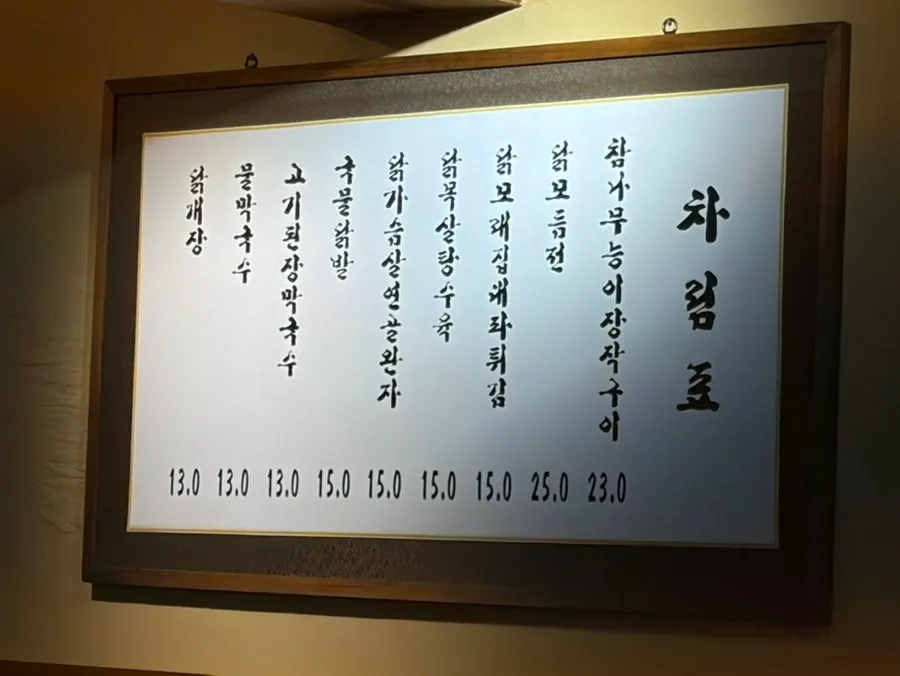 차림표
참나무능이장작구이 23.0
닭모듬전 25.0
닭모래집대파튀김 15.0
닭목살탕수육 15.0
닭가슴살연골완자 15.0
국물닭발 15.0
고기된장막국수 13.0
물막국수 13.0
닭개장 13.0